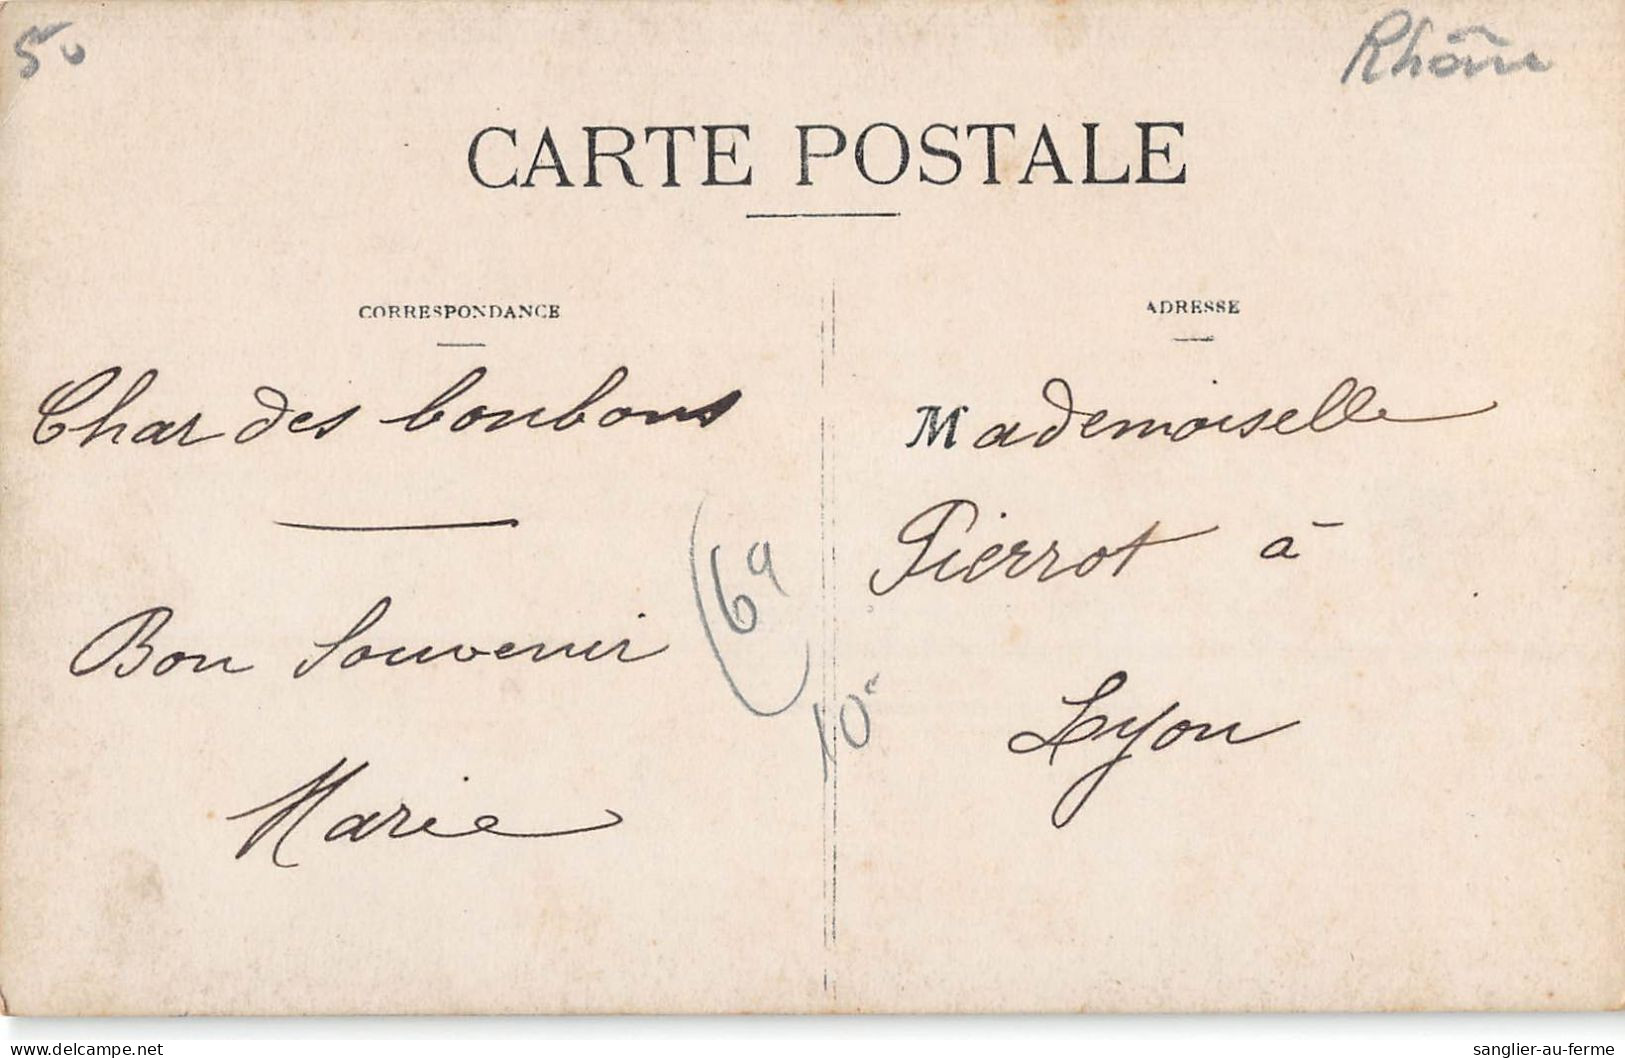 50
Rhône
CARTE POSTALE
CORRESPONDANCE
Char des bonbons
Bon Souvenir
Marie
69
10€
ADRESSE
Mademoiselle
Pierrot à
Lyon
www.delcampe.net
sanglier-au-ferme